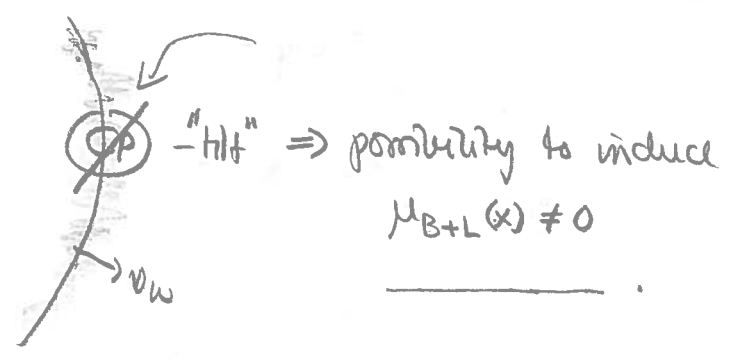 CP - "tilt" ⇒ possibility to induce
μ_{B+L}(x) ≠ 0
v_w